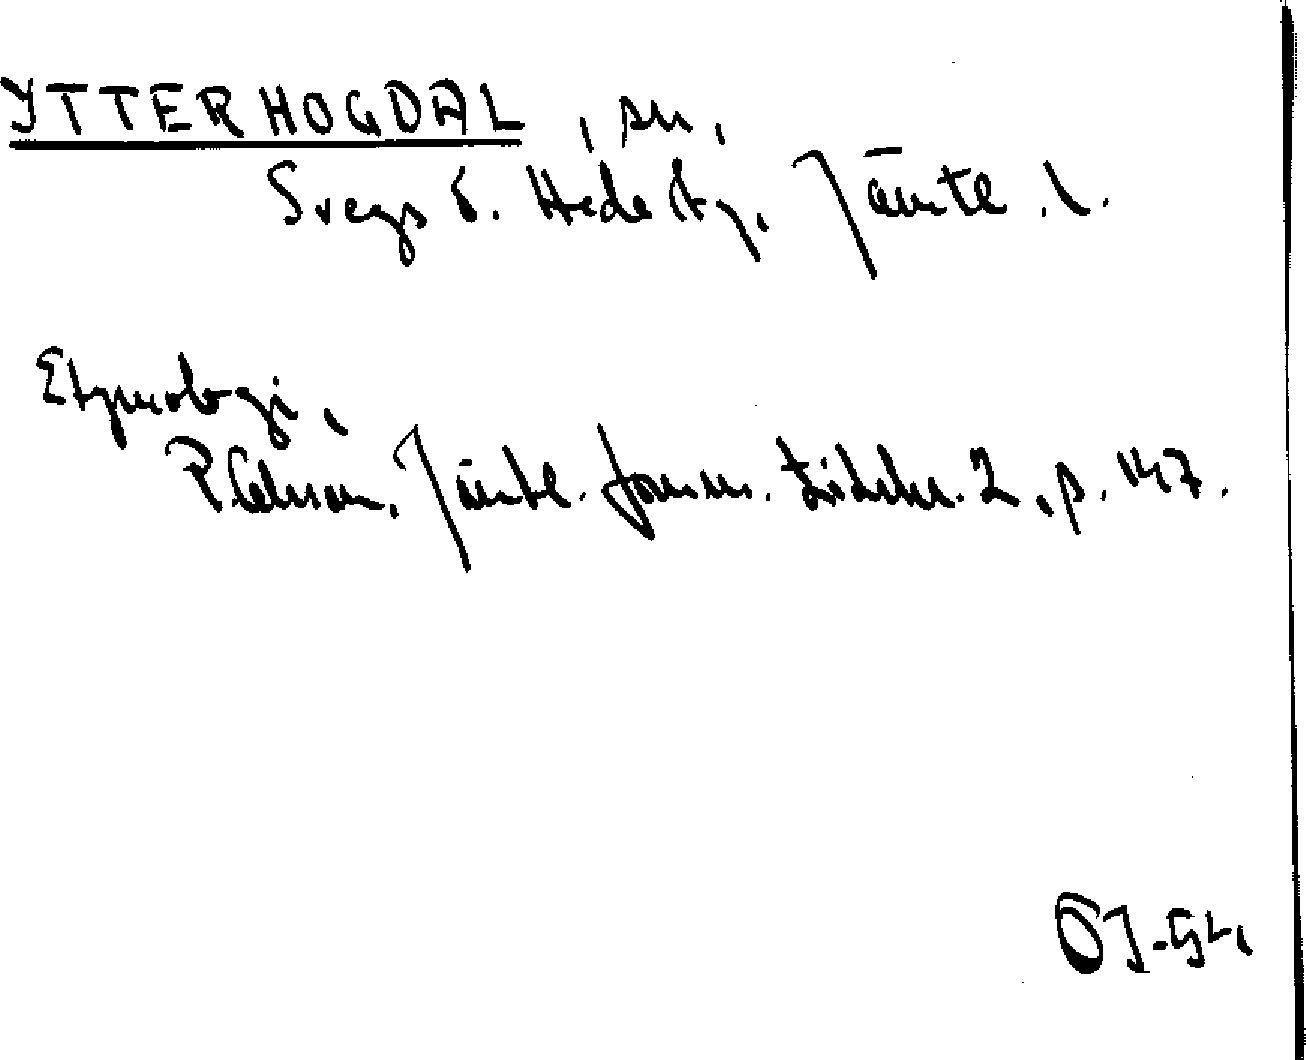 YTTERHOGDAL, sn,
Svegs o. Hede tg, Jämtl. l.
Etymologi,
Jämtl. fornm. tidskr. 2, p. 147.
ÖJ-54